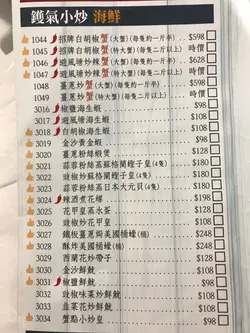 鑊氣小炒 海鮮
1044 招牌白胡椒蟹(大蟹)(每隻約一斤半) $598
1045 招牌白胡椒蟹(特大蟹)(每隻二斤以上) 時價
1046 避風塘炒辣蟹(大蟹)(每隻約一斤半) $628
1047 避風塘炒辣蟹(特大蟹)(每隻二斤以上) 時價
1048 薑蔥炒蟹(大蟹)(每隻約一斤半) $598
1049 薑蔥炒蟹(特大蟹)(每隻二斤以上) 時價
3016 椒鹽海生蝦 $98
3017 避風塘海生蝦 $108
3018 白胡椒海生蝦 $108
3019 金沙黃金蝦 $98
3020 薑蔥粉絲蝦煲 $108
3021 蒜蓉粉絲蒸蘇格蘭蟶子皇(4隻) $180
3022 豉椒炒蘇格蘭蟶子皇(4隻) $180
3023 蒜蓉粉絲蒸日本大元貝(4隻) $180
3024 辣酒煮花螺 $198
3025 花甲皇蒸水蛋 $98
3026 豉椒炒花甲皇 $108
3027 鐵板薑蔥焗美國桶蠔(桶) $248
3028 酥炸美國桶蠔(桶) $248
3029 西蘭花炒帶子 $108
3030 金沙鮮魷 $98
3031 椒鹽鮮魷 $98
3032 豉椒味菜炒鮮魷 $108
3033 韭菜花炒鮮魷 $108
3034 蟹點小炒皇 $98